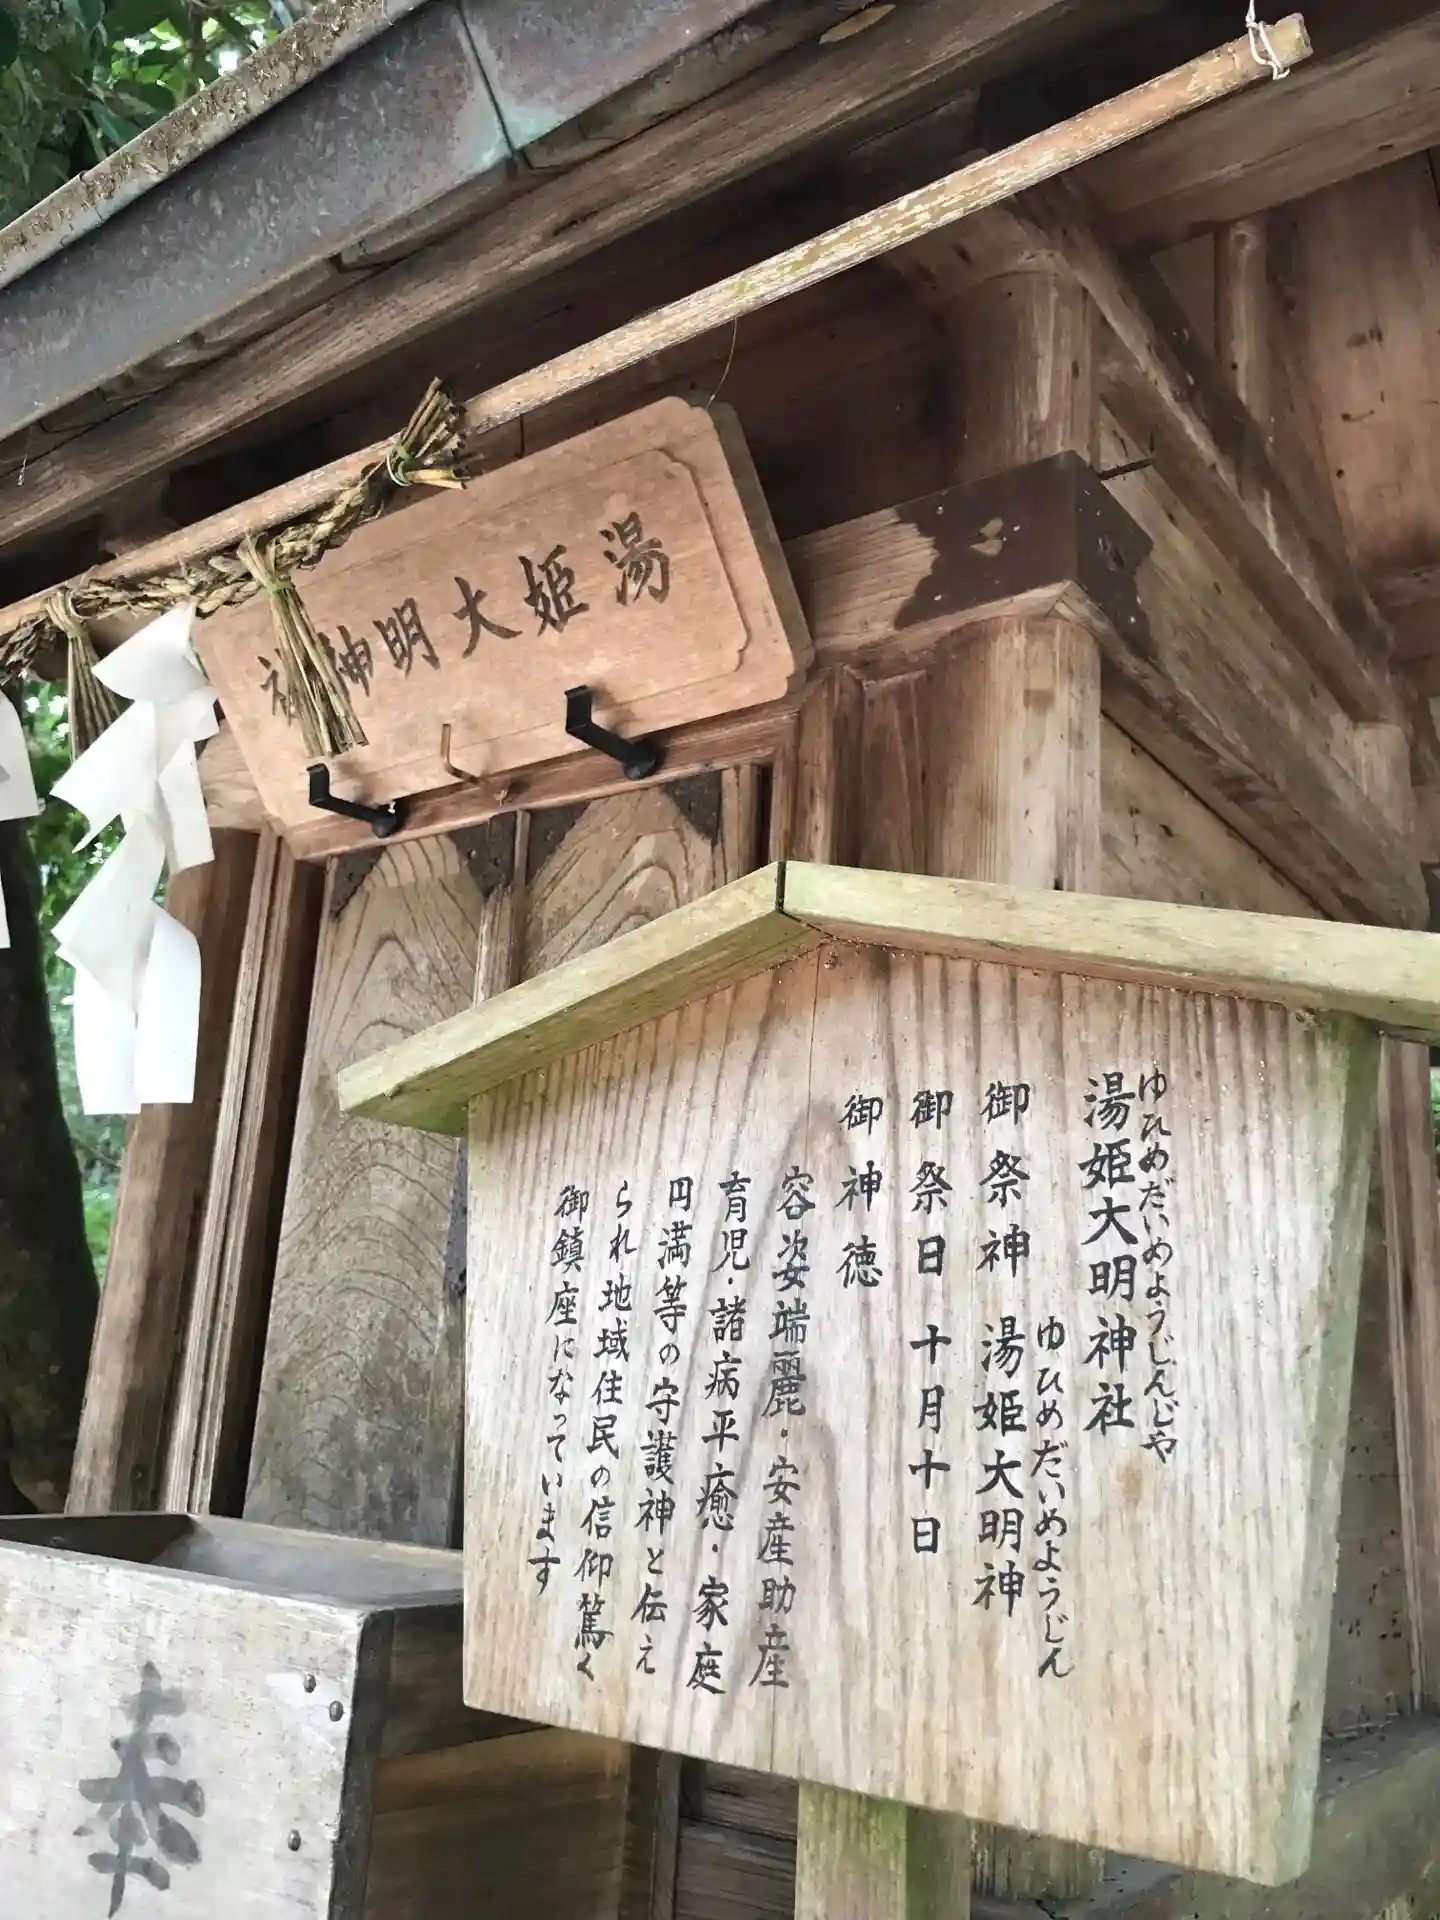 湯姫大明神社
ゆひめだいめようじんじや
湯姫大明神社
ゆひめだいめようじん
御祭神 湯姫大明神
御祭日 十月十日
御神徳
容姿端麗・安産助産
育児・諸病平癒・家庭
円満等の守護神と伝え
られ地域住民の信仰篤く
御鎮座になっています
奉